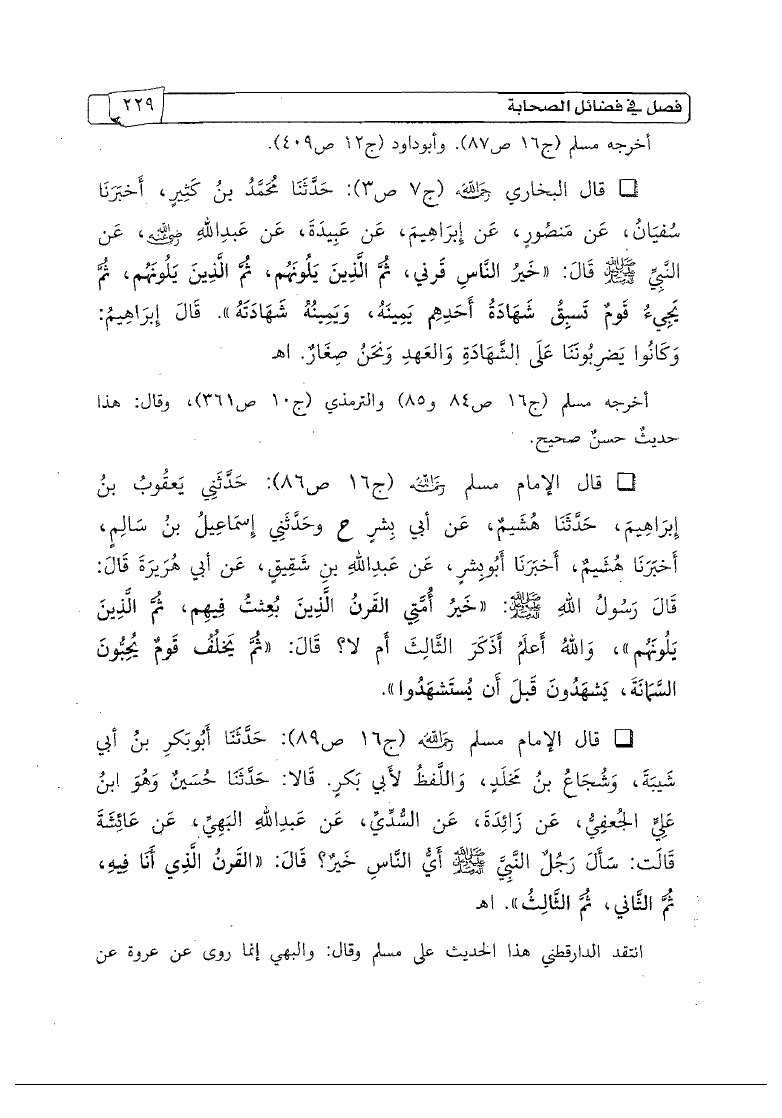 فصل في فضائل الصحابة ٢٢٩
أخرجه مسلم (ج١٦ ص٨٧). وأبوداود (ج١٢ ص٤٠٩).
❑ قال البخاري رَحِمَهُ اللَّهُ (ج٧ ص٣): حَدَّثَنَا مُحَمَّدُ بنُ كَثِيرٍ، أَخبَرَنَا
سُفيَانُ، عَن مَنصُورٍ، عَن إِبرَاهِيمَ، عَن عَبِيدَةَ، عَن عَبدِاللهِ رَضِيَ اللَّهُ عَنْهُ، عَن
النَّبِيِّ ﷺ قَالَ: «خَيرُ النَّاسِ قَرنِي، ثُمَّ الَّذِينَ يَلُونَهُم، ثُمَّ الَّذِينَ يَلُونَهُم، ثُمَّ
يَجِيءُ قَومٌ تَسبِقُ شَهَادَةُ أَحَدِهِم يَمِينَهُ، وَيَمِينُهُ شَهَادَتَهُ». قَالَ إِبرَاهِيمُ:
وَكَانُوا يَضرِبُونَنَا عَلَى الشَّهَادَةِ وَالعَهدِ وَنَحنُ صِغَارٌ. اهـ
أخرجه مسلم (ج١٦ ص٨٤ و٨٥) والترمذي (ج١٠ ص٣٦١)، وقال: هذا
حديثٌ حسنٌ صحيح.
❑ قال الإمام مسلم رَحِمَهُ اللَّهُ (ج١٦ ص٨٦): حَدَّثَنِي يَعقُوبُ بنُ
إِبرَاهِيمَ، حَدَّثَنَا هُشَيمٌ، عَن أَبي بِشرٍ ح وحَدَّثَنِي إِسمَاعِيلُ بنُ سَالِمٍ،
أَخبَرَنَا هُشَيمٌ، أَخبَرَنَا أَبُوبِشرٍ، عَن عَبدِاللهِ بنِ شَقِيقٍ، عَن أبي هُرَيرَةَ قَالَ:
قَالَ رَسُولُ اللهِ ﷺ: «خَيرُ أُمَّتِي القَرنُ الَّذِينَ بُعِثتُ فِيهِم، ثُمَّ الَّذِينَ
يَلُونَهُم»، وَاللهُ أَعلَمُ أَذَكَرَ الثَّالِثَ أَم لا؟ قَالَ: «ثُمَّ يَخلُفُ قَومٌ يُحِبُّونَ
السَّمَانَةَ، يَشهَدُونَ قَبلَ أَن يُستَشهَدُوا».
❑ قال الإمام مسلم رَحِمَهُ اللَّهُ (ج١٦ ص٨٩): حَدَّثَنَا أَبُوبَكرِ بنُ أَبي
شَيبَةَ، وَشُجَاعُ بنُ مَخلَدٍ، وَاللَّفظُ لأَبي بَكرٍ. قَالا: حَدَّثَنَا حُسَينٌ وَهُوَ ابنُ
عَلِيٍّ الجُعفِيُّ، عَن زَائِدَةَ، عَن السُّدِّيِّ، عَن عَبدِاللهِ البَهِيِّ، عَن عَائِشَةَ
قَالَت: سَأَلَ رَجُلٌ النَّبِيَّ ﷺ أَيُّ النَّاسِ خَيرٌ؟ قَالَ: «القَرنُ الَّذِي أَنَا فِيهِ،
ثُمَّ الثَّانِي، ثُمَّ الثَّالِثُ». اهـ
انتقد الدارقطني هذا الحديث على مسلم وقال: والبهي إنما روى عن عروة عن